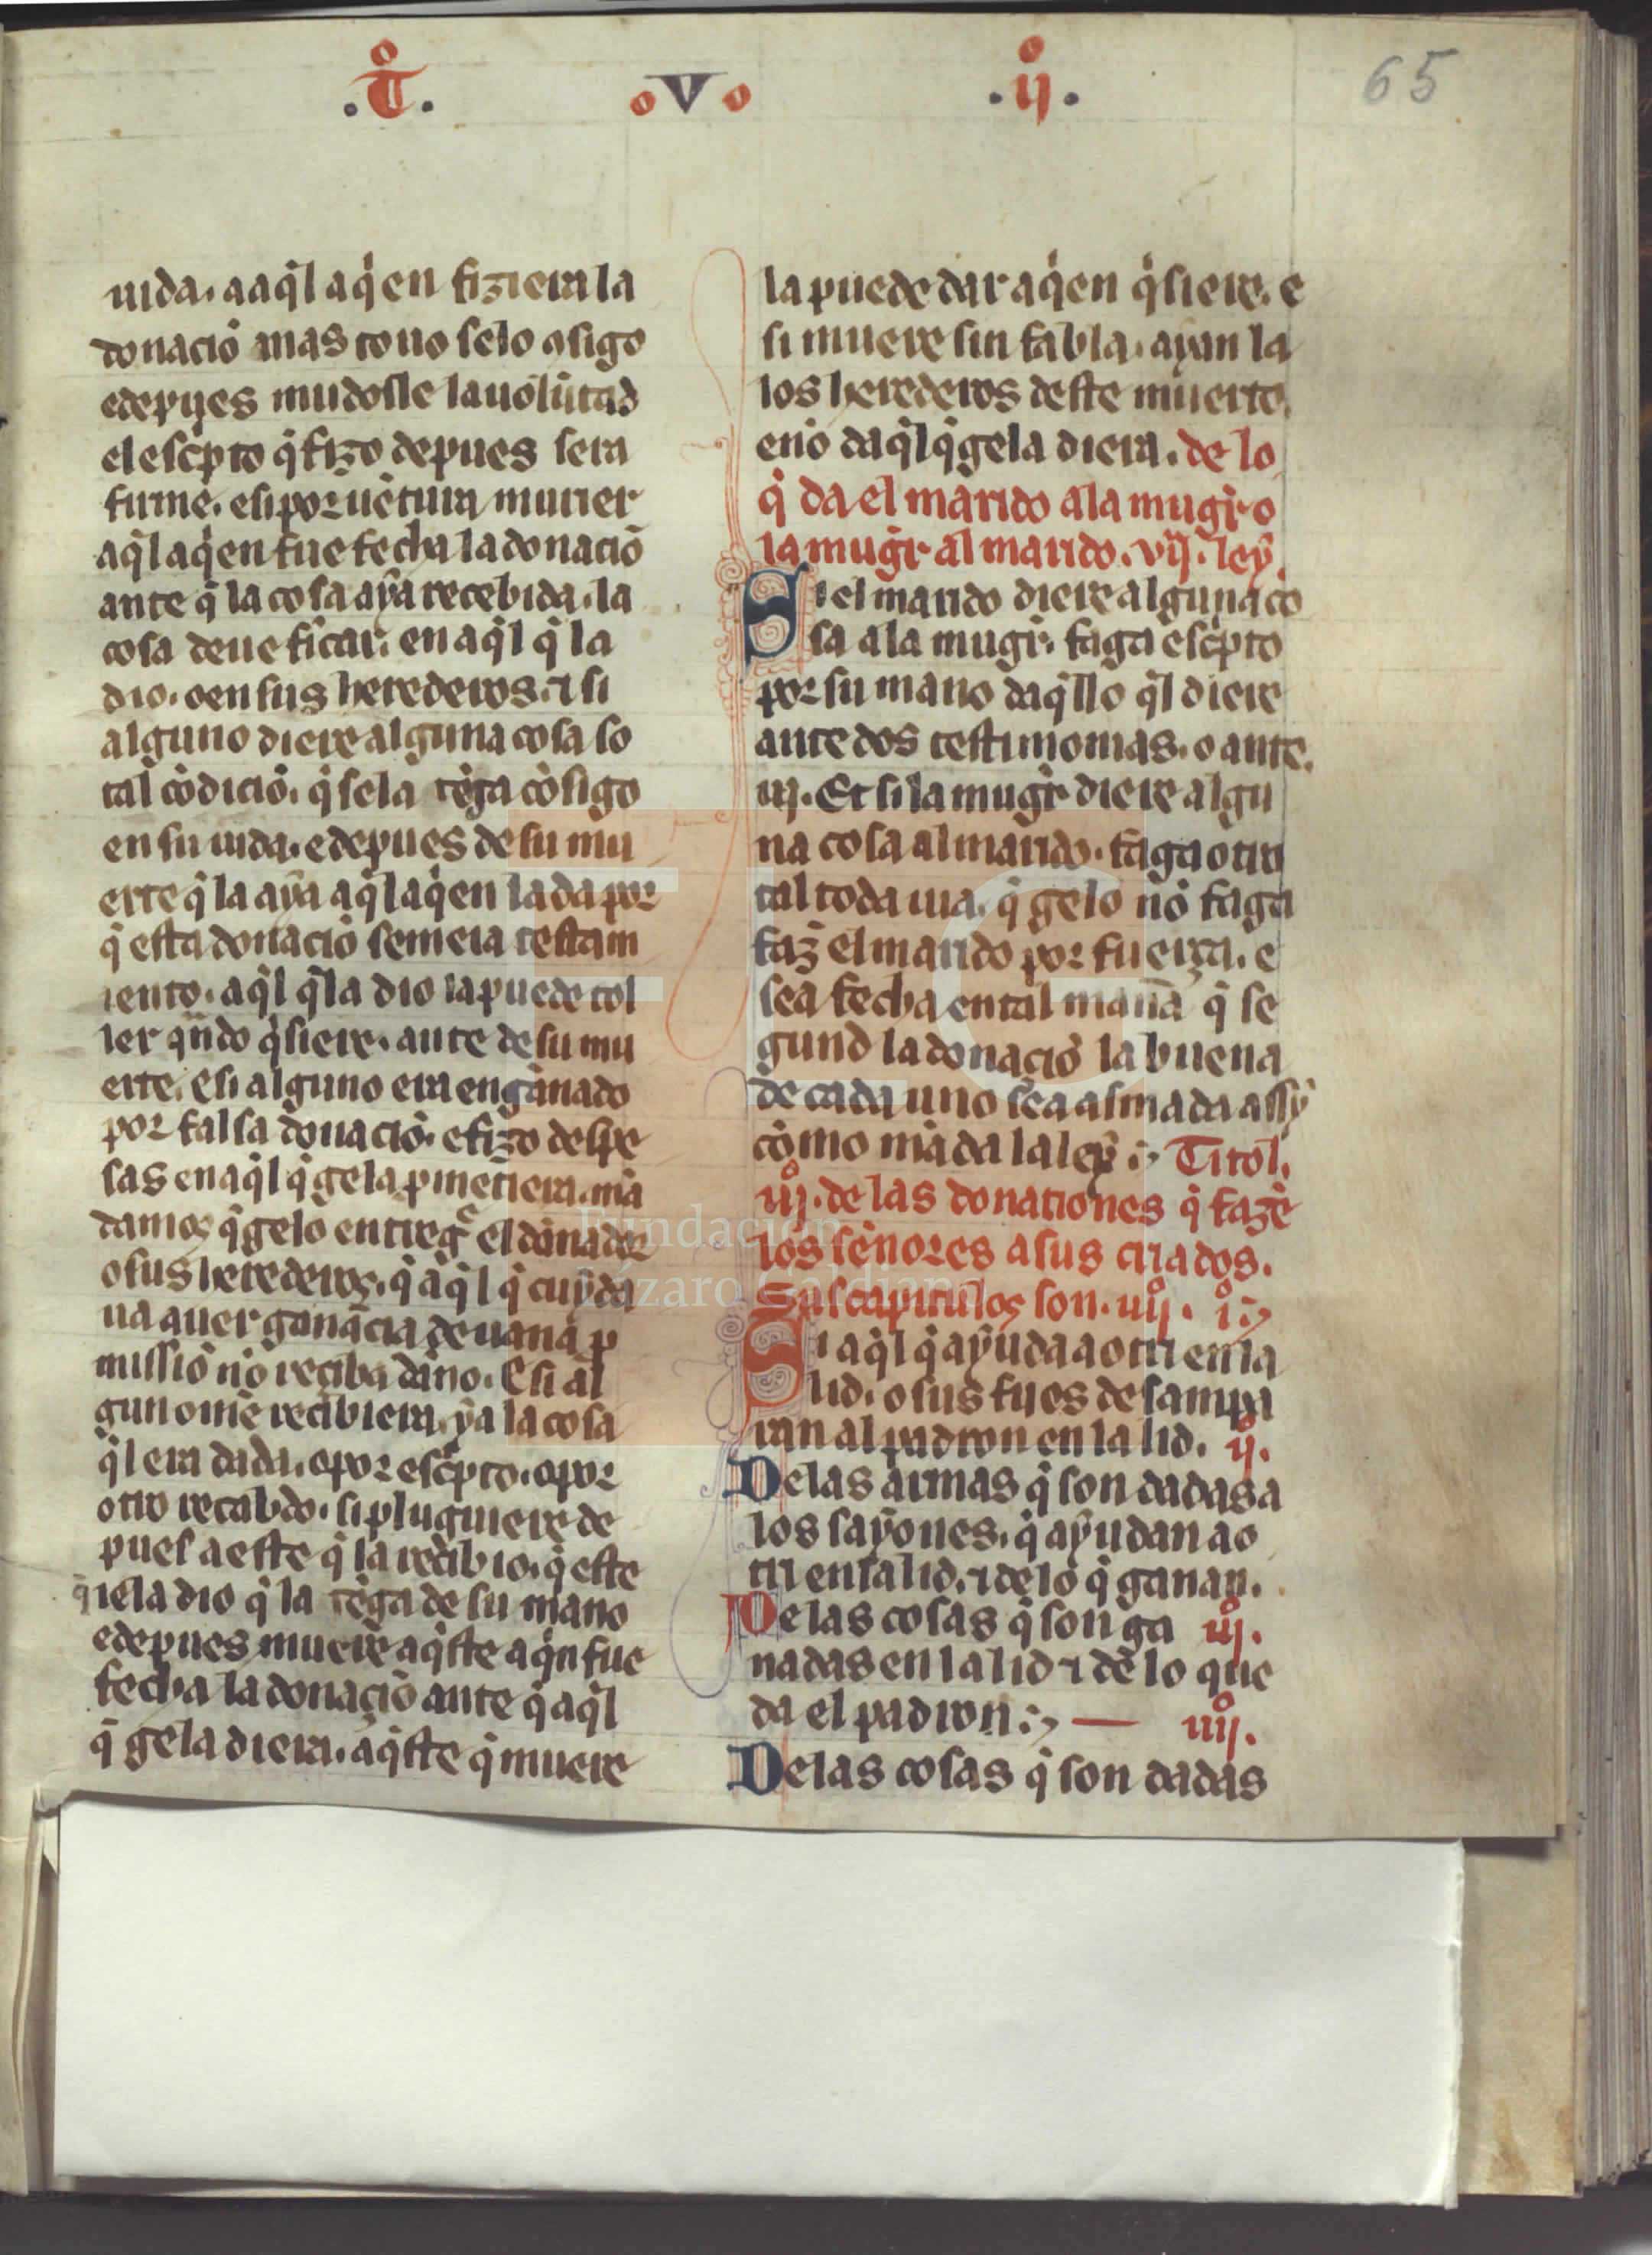 .T͛. oVo .ij͛. 65
uida. a aq̇l a q̇en fiziera la
donació mas touo selo ꝯsigo
e depues mudosle la uolūtad
el esc̄pto q̇ fizo depues sera
firme. e si por uētura murier
aq̇l a q̇en fue fecha la donació
ante q̇ la cosa aya recebida. la
cosa deue ficar. en aq̇l q̇ la
dio. o en sus herederos. ⁊ si
alguno diere alguna cosa so
tal cōdició. q̇ se la tēga cōsigo
en su uida. e depues de su mu
erte q̇ la aya aq̇l a q̇en la da por
q̇ esta donació semeia testam
iento. aq̇l q̇ la dio la puede tol
ler qn̄do q̇siere. ante de su mu
erte. E si alguno era enganado
por falsa donació. e fizo despe
sas en aq̇l q̇ gela pmetiera. mā
damos q̇ gelo entregͣ el donador
o sus herederos. q̇ aq̇l q̇ cuyda
ua auer ganācia de uana p
missió nō reciba dāno. E si al
gun omē recibiera ya la cosa
q̇l era dada. o por esc̄pto. o por
otro recabdo. si pluguiere de
pues a este q̇ la recibio. q̇ este
q̇ iela dio q̇ la tēga de su mano
e depues muere aq̇ste a q̇n fue
fecha la donació ante q̇ aq̇l
q̇ gela diera. aq̇ste q̇ muere
la puede dar a q̇en q̇siere. e
si muere sin fabla. ayan la
los herederos deste muerto.
e nō daq̇l q̇ gela diera. de lo
q̇ da el marido a la mugr̄ o
la mugr̄ al marido. vij. ley.
Si el marido diere alguna co
sa a la mugr̄. faga esc̄pto
por su mano daq̇llo q̇l diere
ante dos testimonias. o ante.
iij. Et si la mugr̄ diere algu
na cosa al marido. faga otro
tal toda uia. q̇ gelo nō faga
faz̄ el marido por fuerça. e
sea fecha en tal man̄a q̇ se
gund la donació la buena
de cada uno sea asmada assy
cōmo māda la ley :; Titol.
iij͛. de las donationes q̇ fazē
los sēnores a sus criados.
Sus capitulos son. iiij͛. i͛:;
Si aq̇l q̇ ayuda a otri en la
lid. o sus fijos desampa
ran al padron en la lid. ij͛.
De las armas q̇ son dadas a
los sayones. q̇ ayudan a o
tri en sa lid. ⁊ de lo q̇ ganan.
De las cosas q̇ son ga iij͛.
nadas en la lid ⁊ de lo que
da el padron :; — iiij͛.
De las cosas q̇ son dadas
Fundación
Lázaro Galdiano